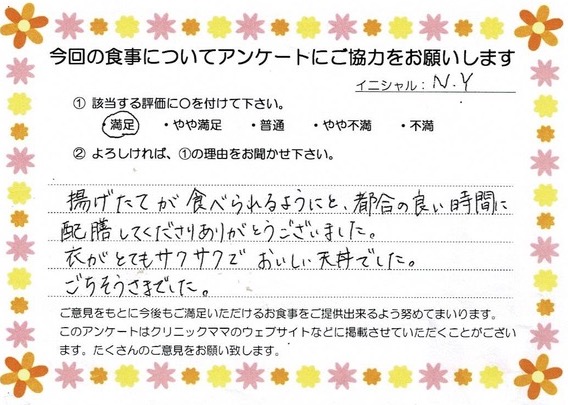 今回の食事についてアンケートにご協力をお願いします
イニシャル： N.Y
① 該当する評価に○を付けて下さい。
・満足 ・やや満足 ・普通 ・やや不満 ・不満
② よろしければ、①の理由をお聞かせ下さい。
揚げたてが食べられるようにと、都合の良い時間に
配膳してくださりありがとうございました。
衣がとてもサクサクでおいしい天丼でした。
ごちそうさまでした。
ご意見をもとに今後もご満足いただけるお食事をご提供出来るよう努めてまいります。
このアンケートはクリニックママのウェブサイトなどに掲載させていただくことがござい
ます。たくさんのご意見をお願い致します。